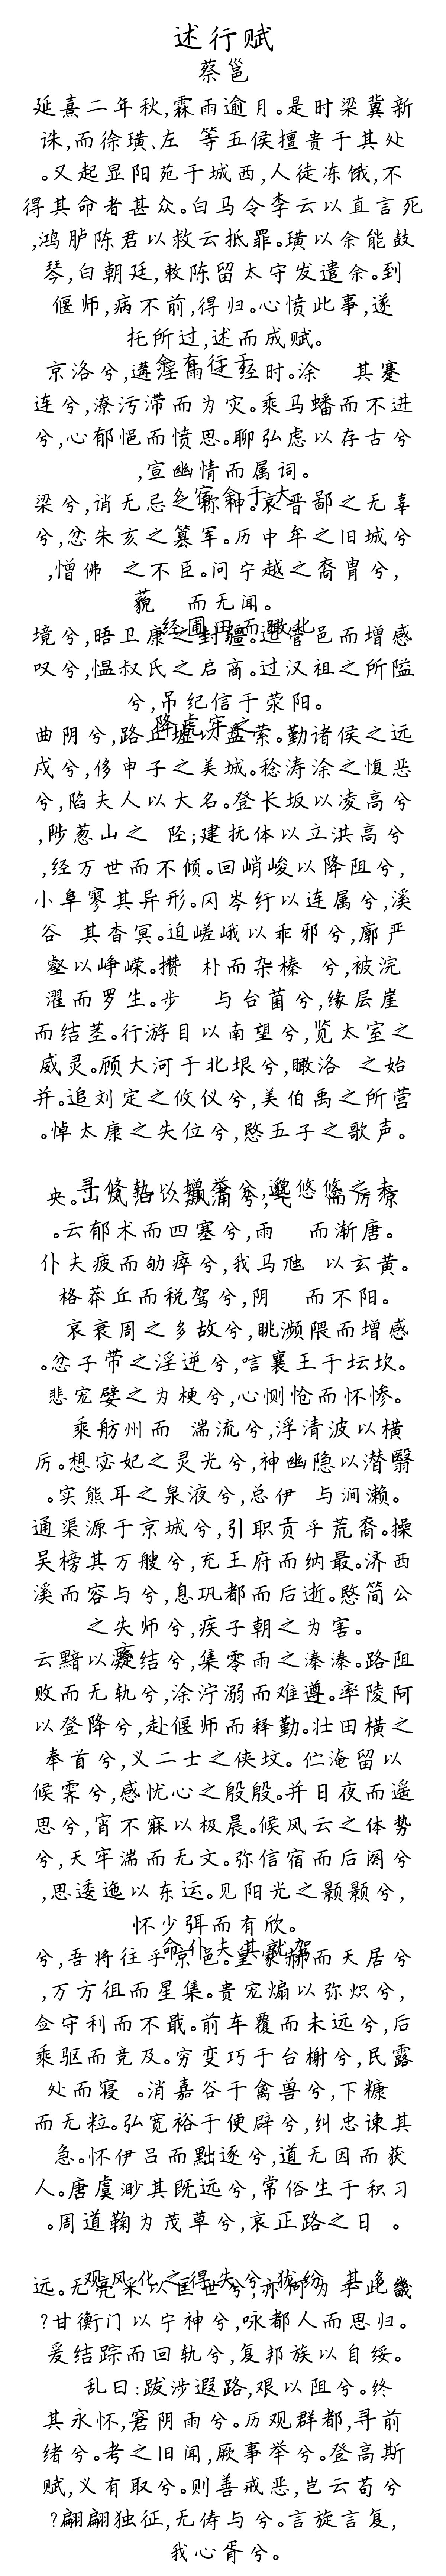 述行赋
蔡邕
延熹二年秋,霖雨逾月。是时梁冀新
诛,而徐璜、左 等五侯擅贵于其处
。又起显阳苑于城西,人徒冻饿,不
得其命者甚众。白马令李云以直言死
,鸿胪陈君以救云抵罪。璜以余能鼓
琴,白朝廷,敕陈留太守发遣余。到
偃师,病不前,得归。心愤此事,遂
托所过,述而成赋。
余有行于
京洛兮,遘淫雨之经时。涂 其蹇
连兮,潦污滞而为灾。乘马蟠而不进
兮,心郁悒而愤思。聊弘虑以存古兮
,宣幽情而属词。
夕宿余于大
梁兮,诮无忌之称神。哀晋鄙之无辜
兮,忿朱亥之篡军。历中牟之旧城兮
,憎佛 之不臣。问宁越之裔胄兮,
藐 而无闻。
经圃田而瞰北
境兮,晤卫康之封疆。迄管邑而增感
叹兮,愠叔氏之启商。过汉祖之所隘
兮,吊纪信于荥阳。
降虎牢之
曲阴兮,路丘墟以盘萦。勤诸侯之远
戍兮,侈申子之美城。稔涛涂之愎恶
兮,陷夫人以大名。登长坂以凌高兮
,陟葱山之 陉;建抚体以立洪高兮
,经万世而不倾。回峭峻以降阻兮,
小阜寥其异形。冈岑纡以连属兮,溪
谷 其杳冥。迫嵯峨以乖邪兮,廓严
壑以峥嵘。攒 朴而杂榛 兮,被浣
濯而罗生。步 与台菌兮,缘层崖
而结茎。行游目以南望兮,览太室之
威灵。顾大河于北垠兮,瞰洛 之始
并。追刘定之攸仪兮,美伯禹之所营
。悼太康之失位兮,愍五子之歌声。
寻修轨以增举兮,邈悠悠之未
央。山风 以飙涌兮,气 而厉凉
。云郁术而四塞兮,雨 而渐唐。
仆夫疲而劬瘁兮,我马虺 以玄黄。
格莽丘而税驾兮,阴 而不阳。
哀衰周之多故兮,眺濒隈而增感
。忿子带之淫逆兮,唁襄王于坛坎。
悲宠嬖之为梗兮,心恻怆而怀惨。
乘舫州而 湍流兮,浮清波以横
厉。想宓妃之灵光兮,神幽隐以潜翳
。实熊耳之泉液兮,总伊 与涧濑。
通渠源于京城兮,引职贡乎荒裔。操
吴榜其万艘兮,充王府而纳最。济西
溪而容与兮,息巩都而后逝。愍简公
之失师兮,疾子朝之为害。
云黯以凝结兮,集零雨之溱溱。路阻
败而无轨兮,涂泞溺而难遵。率陵阿
以登降兮,赴偃师而释勤。壮田横之
奉首兮,义二士之侠坟。伫淹留以
候霁兮,感忧心之殷殷。并日夜而遥
思兮,宵不寐以极晨。候风云之体势
兮,天牢湍而无文。弥信宿而后阕兮
,思逶迤以东运。见阳光之颢颢兮,
怀少弭而有欣。
命仆夫其就驾
兮,吾将往乎京邑。皇家赫而天居兮
,万方徂而星集。贵宠煽以弥炽兮,
佥守利而不戢。前车覆而未远兮,后
乘驱而竞及。穷变巧于台榭兮,民露
处而寝 。消嘉谷于禽兽兮,下糠
而无粒。弘宽裕于便辟兮,纠忠谏其
急。怀伊吕而黜逐兮,道无因而获
人。唐虞渺其既远兮,常俗生于积习
。周道鞠为茂草兮,哀正路之日 。
观风化之得失兮,犹纷 其
远。无亮采以匡世兮,亦何为乎此畿
?甘衡门以宁神兮,咏都人而思归。
爰结踪而回轨兮,复邦族以自绥。
乱曰:跋涉遐路,艰以阻兮。终
其永怀,窘阴雨兮。历观群都,寻前
绪兮。考之旧闻,厥事举兮。登高斯
赋,义有取兮。则善戒恶,岂云苟兮
?翩翩独征,无俦与兮。言旋言复,
我心胥兮。